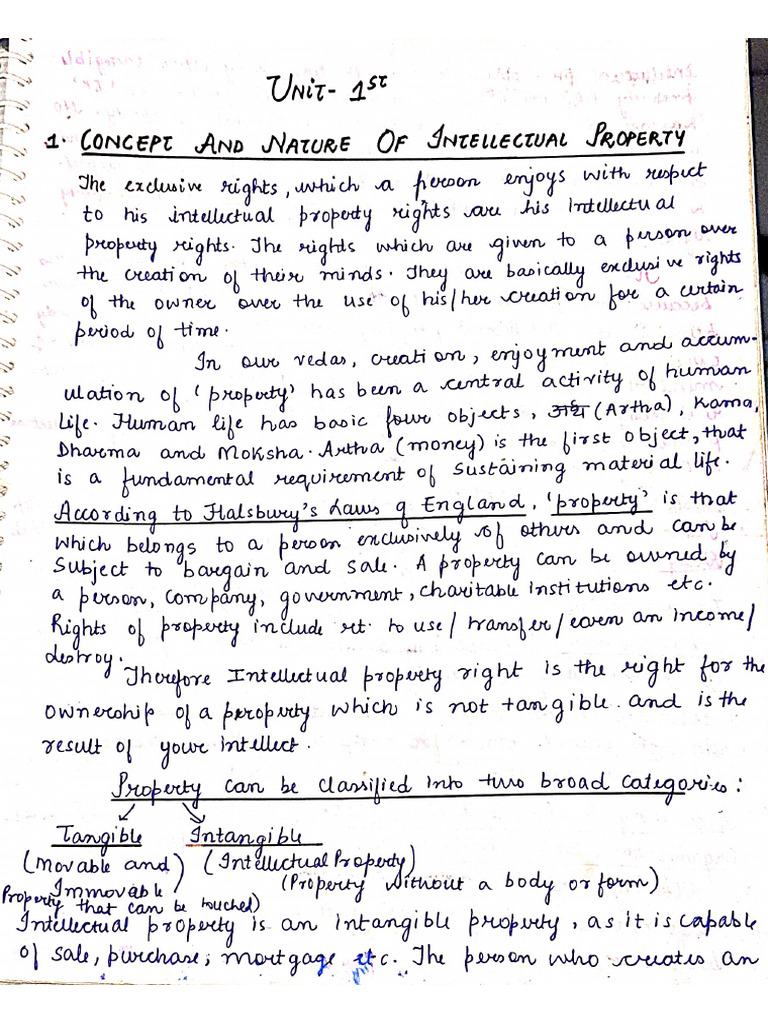 UNIT- 1ST
1. CONCEPT AND NATURE OF INTELLECTUAL PROPERTY
The exclusive rights, which a person enjoys with respect
to his intellectual property rights are his intellectual
property rights. The rights which are given to a person over
the creation of their minds. They are basically exclusive rights
of the owner over the use of his/her creation for a certain
period of time.
In our vedas, creation, enjoyment and accum-
ulation of 'property' has been a central activity of human
life. Human life has basic four objects, अर्थ (Artha), Kama,
Dharma and Moksha. Artha (money) is the first object, that
is a fundamental requirement of sustaining material life.
According to Halsbury's Laws of England, 'property' is that
which belongs to a person exclusively of others and can be
subject to bargain and sale. A property can be owned by
a person, company, government, charitable institutions etc.
Rights of property include rt. to use/transfer/earn an income/
destroy.
Therefore Intellectual property right is the right for the
ownership of a property which is not tangible and is the
result of your intellect.
Property can be classified into two broad categories:
Tangible Intangible
(Movable and) (Intellectual Property)
Immovable (Property without a body or form)
Property that can be touched)
Intellectual property is an intangible property, as it is capable
of sale, purchase, mortgage etc. The person who creates an